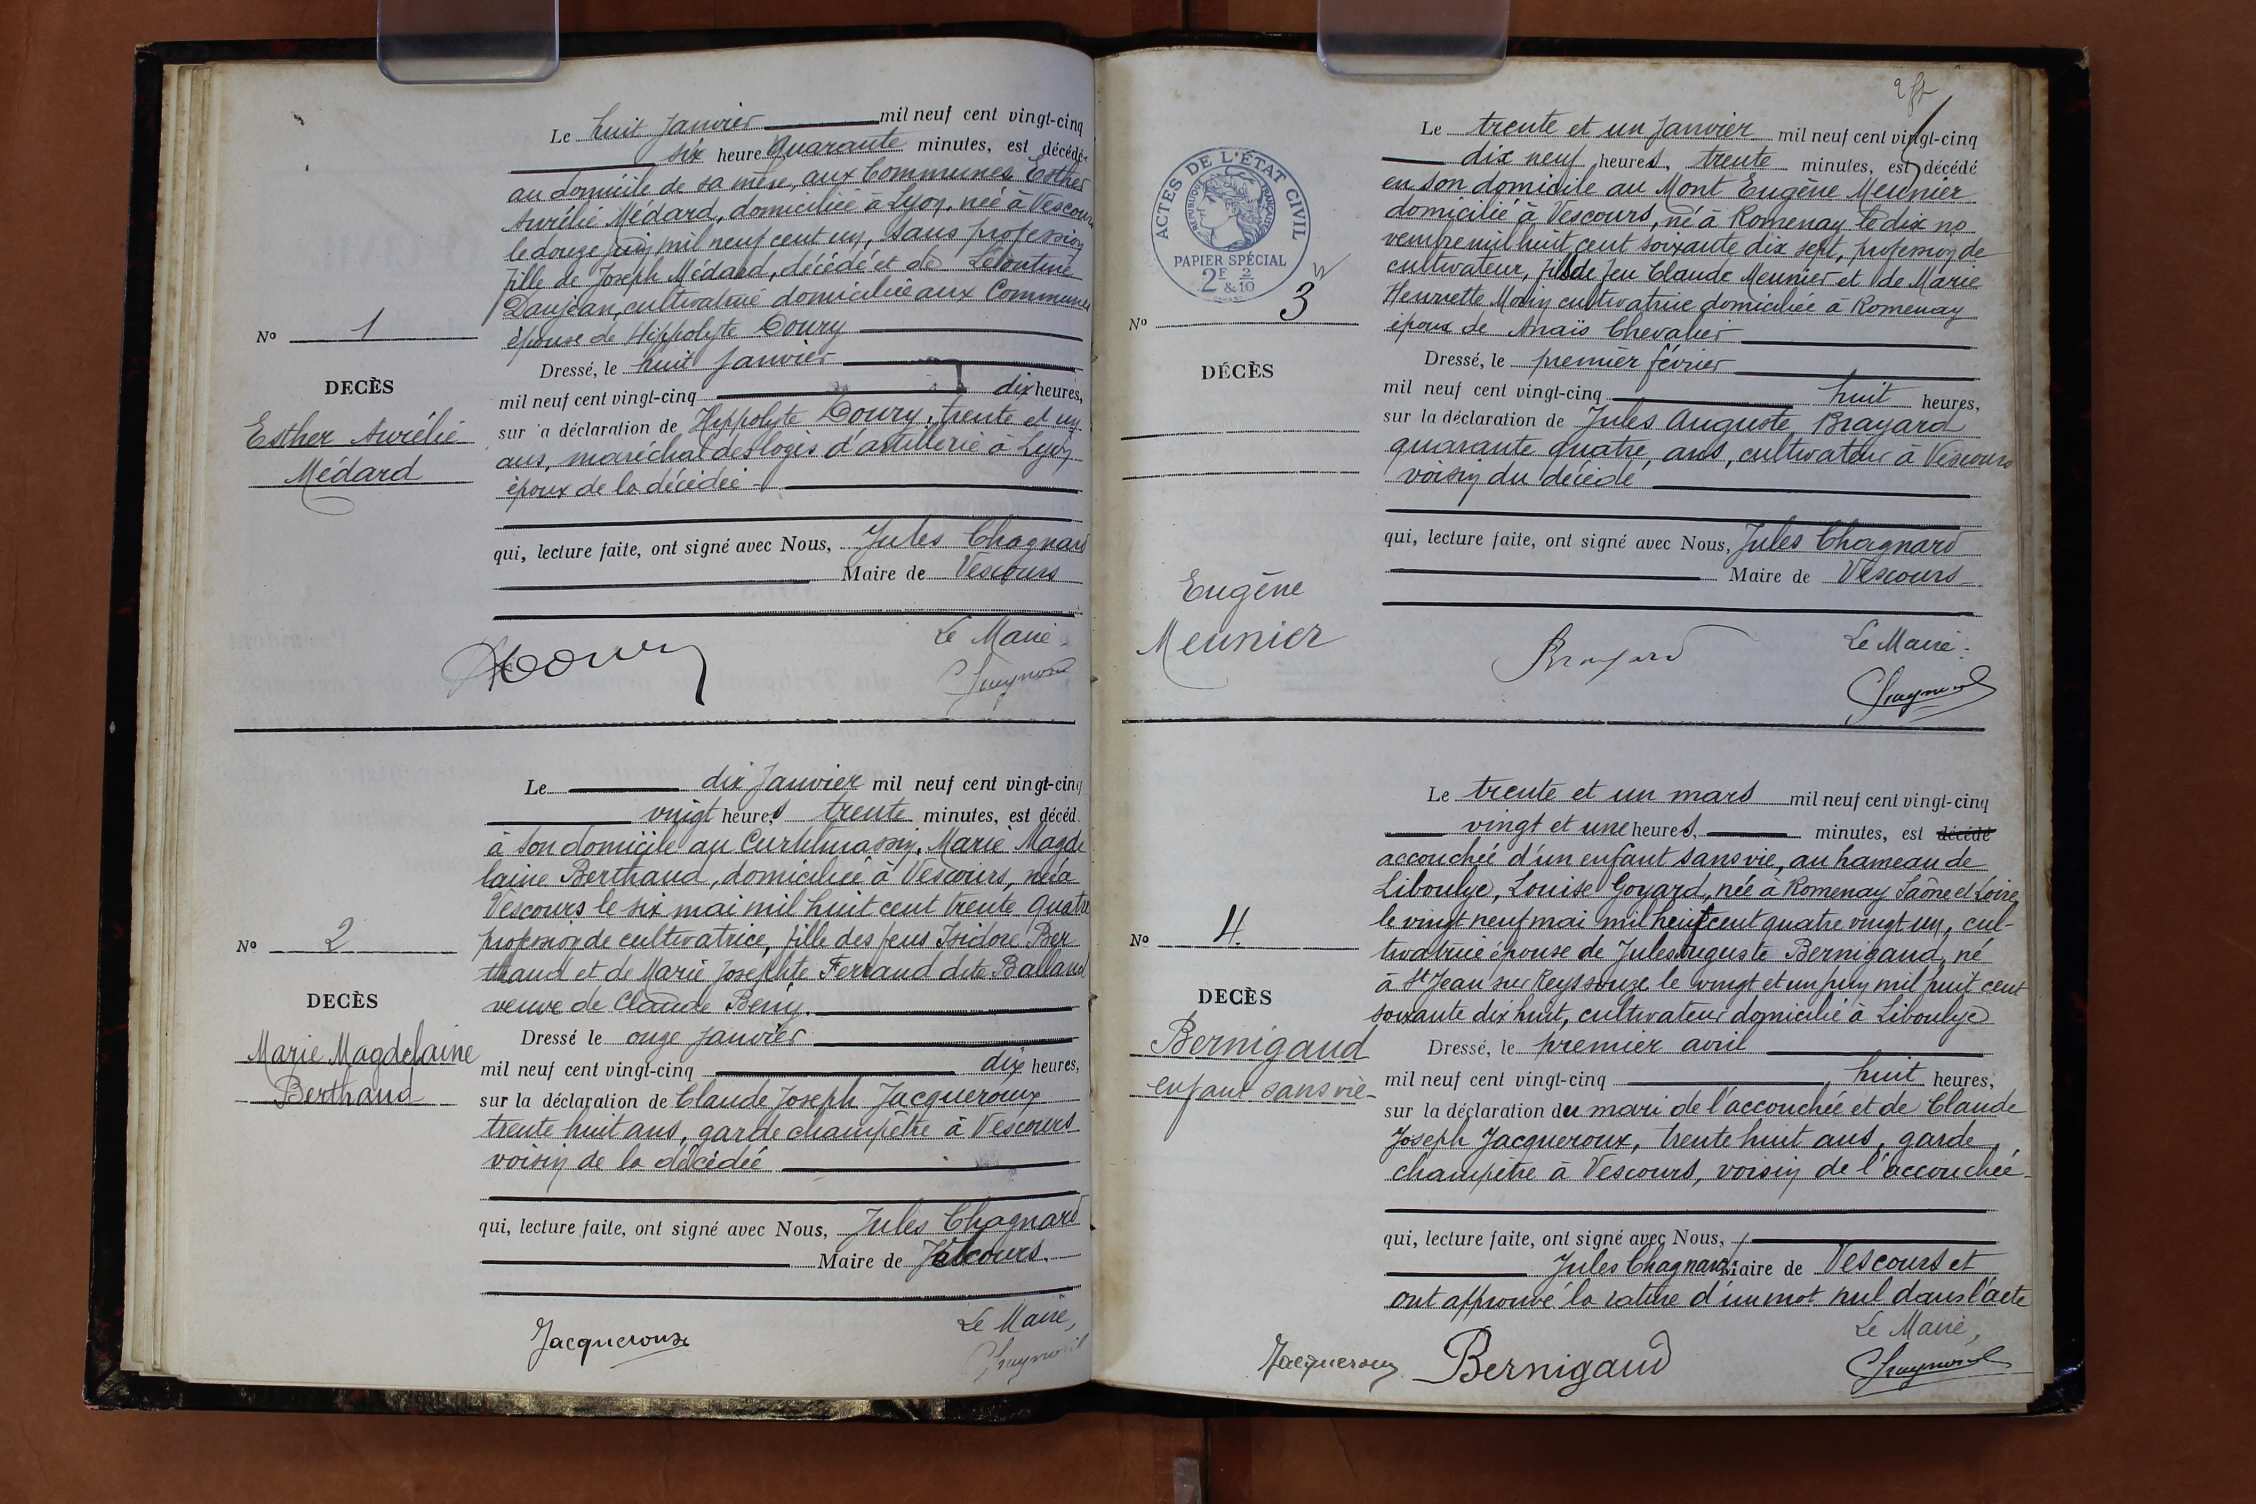 Le huit Janvier mil neuf cent vingt-cinq
six heure quarante minutes, est décédée
au domicile de sa mère, aux Communes Esther
Aurélie Médard, domiciliée à Lyon, née à Vescours
le douze juin mil neuf cent un, sans profession
fille de Joseph Médard, décédé et de Léontine
Daujean, cultivatrice domiciliée aux Communes
épouse de Hippolyte Coury
Dressé, le huit Janvier
mil neuf cent vingt-cinq dix heures,
sur a déclaration de Hyppolyte Coury, trente et un
ans, maréchal des logis d'artillerie à Lyon
époux de la décédée
qui, lecture faite, ont signé avec Nous, Jules Chagnard
Maire de Vescours
Le Maire
No 1
DECÈS
Esther Aurélie
Médard
Le dix Janvier mil neuf cent vingt-cinq
vingt heures trente minutes, est décéd
à son domicile au Curtelmassin, Marie Magde
laine Berthaud, domiciliée à Vescours, née à
Vescours le six mai mil huit cent trente quatre
profession de cultivatrice, fille des feus Isidore Ber
thaud et de Marie Josephte Ferraud dite Balland
veuve de Claude Beny.
Dressé le onze Janvier
mil neuf cent vingt-cinq dix heures,
sur la déclaration de Claude Joseph Jacqueroux
trente huit ans, garde champêtre à Vescours
voisin de la décédée
qui, lecture faite, ont signé avec Nous, Jules Chagnard
Maire de Vescours.
Jacqueroux
Le Maire,
No 2
DECÈS
Marie Magdelaine
Berthaud
ACTES DE L'ÉTAT CIVIL
RÉPUBLIQUE FRANÇAISE
PAPIER SPÉCIAL
2F 2
&10
No 3
DÉCÈS
Eugène
Meunier
Le trente et un Janvier mil neuf cent vingt-cinq
dix neuf heures, trente minutes, est décédé
en son domicile au Mont Eugène Meunier
domicilié à Vescours, né à Romenay le dix no
vembre mil huit cent soixante dix sept, profession de
cultivateur, fils de feu Claude Meunier et de Marie
Henriette Morin cultivatrice domiciliée à Romenay
époux de Anaïs Chevalier
Dressé, le premier février
mil neuf cent vingt-cinq huit heures,
sur la déclaration de Jules Auguste Brayard
quarante quatre ans, cultivateur à Vescours
voisin du décédé
qui, lecture faite, ont signé avec Nous, Jules Chagnard
Maire de Vescours
Brayard
Le Maire:
Le trente et un mars mil neuf cent vingt-cinq
vingt et une heures, minutes, est décédé
accouchée d'un enfant sans vie, au hameau de
Liboulye, Louise Goyard, née à Romenay Saône et Loire
le vingt neuf mai mil huit cent quatre vingt un, cul-
tivatrice épouse de Jules Auguste Bernigaud, né
à St Jean sur Reyssouze le vingt et un juin mil huit cent
soixante dix huit, cultivateur domicilié à Liboulye
Dressé, le premier avril
mil neuf cent vingt-cinq huit heures,
sur la déclaration du mari de l'accouchée et de Claude
Joseph Jacqueroux, trente huit ans, garde
champêtre à Vescours, voisin de l'accouchée
qui, lecture faite, ont signé avec Nous,
Jules Chagnard Maire de Vescours et
ont approuvé la rature d'un mot nul dans l'acte
Le Maire,
Jacqueroux Bernigaud
No 4.
DECÈS
Bernigaud
enfant sans vie